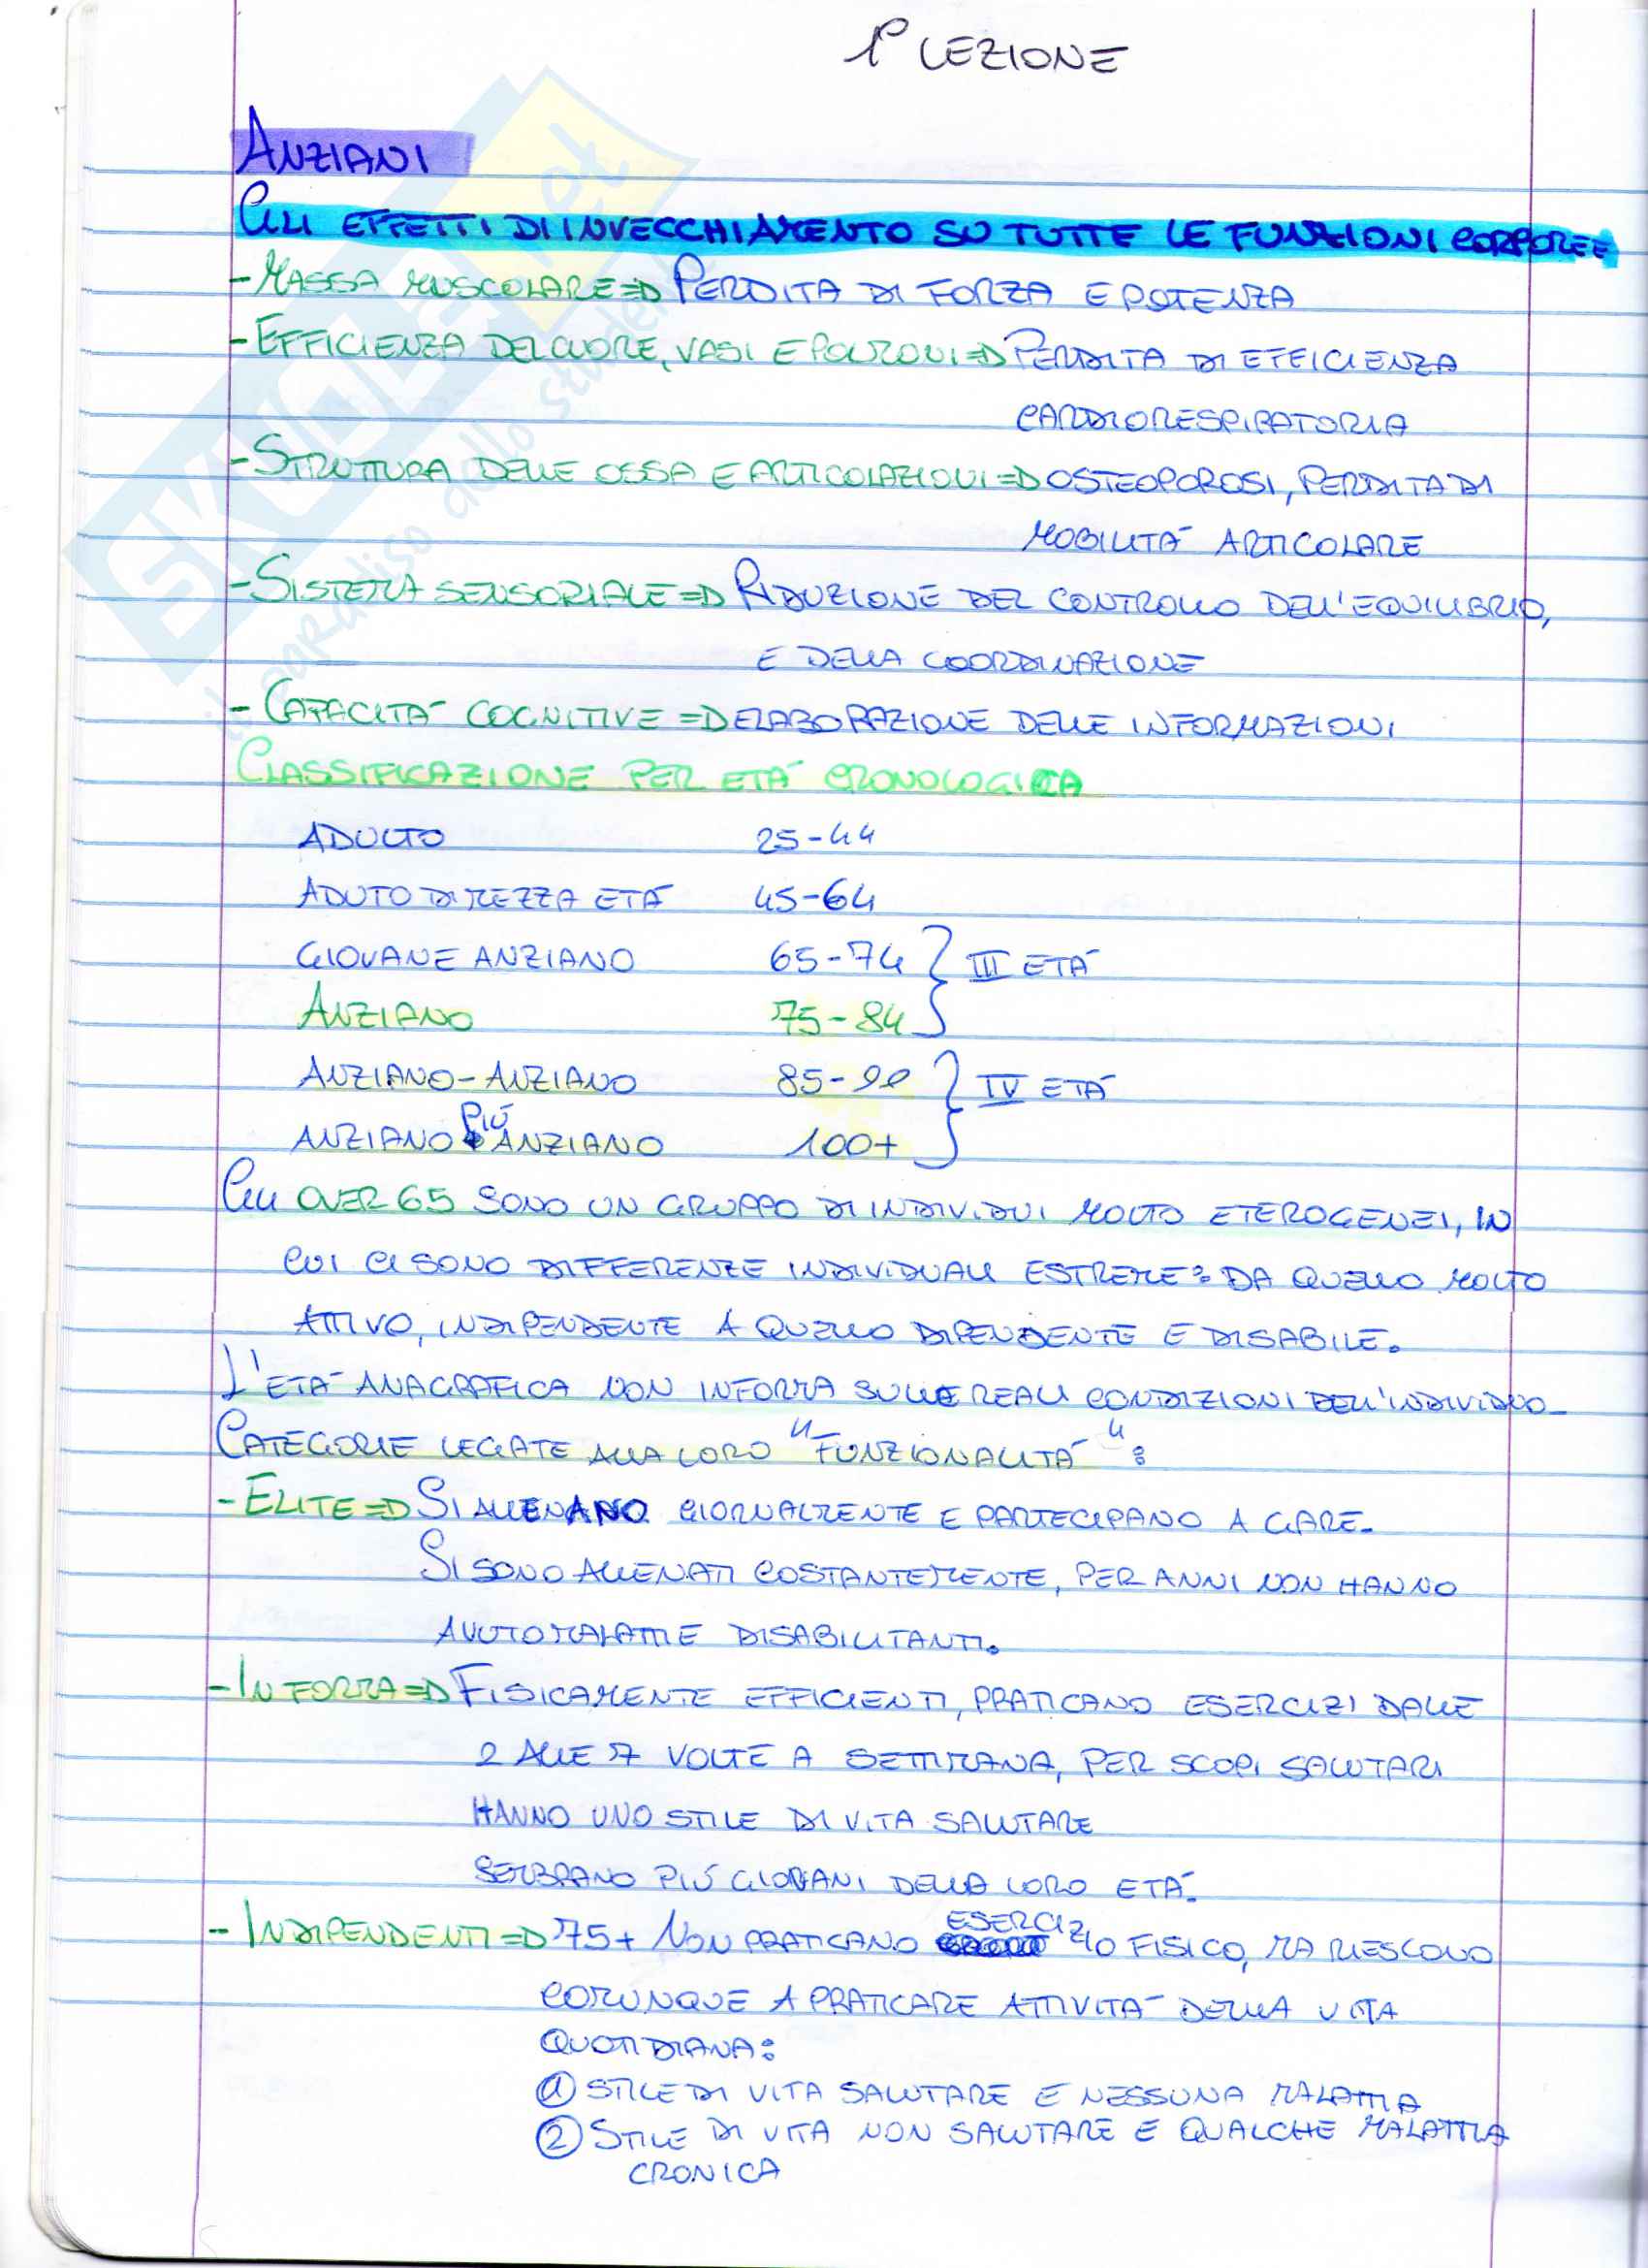 1° LEZIONE
ANZIANI
GLI EFFETTI DI INVECCHIAMENTO SU TUTTE LE FUNZIONI CORPOREE
- MASSA MUSCOLARE => PERDITA DI FORZA E POTENZA
- EFFICIENZA DEL CUORE, VASI E POLMONI => PERDITA DI EFFICIENZA
CARDIORESPIRATORIA
- STRUTTURA DELLE OSSA E ARTICOLAZIONI => OSTEOPOROSI, PERDITA DI
MOBILITÀ ARTICOLARE
- SISTEMA SENSORIALE => RIDUZIONE DEL CONTROLLO DELL'EQUILIBRIO,
E DELLA COORDINAZIONE
- CAPACITÀ COGNITIVE => ELABORAZIONE DELLE INFORMAZIONI
CLASSIFICAZIONE PER ETÀ CRONOLOGICA
ADULTO 25-44
ADUTO DI MEZZA ETÀ 45-64
GIOVANE ANZIANO 65-74 } III ETÀ
ANZIANO 75-84
ANZIANO-ANZIANO 85-99 } IV ETÀ
ANZIANO PIÙ ANZIANO 100+
GLI OVER 65 SONO UN GRUPPO DI INDIVIDUI MOLTO ETEROGENEI, IN
CUI CI SONO DIFFERENZE INDIVIDUALI ESTREME: DA QUELLO MOLTO
ATTIVO, INDIPENDENTE A QUELLO DIPENDENTE E DISABILE.
L'ETÀ ANAGRAFICA NON INFORMA SULLE REALI CONDIZIONI DELL'INDIVIDUO.
CATEGORIE LEGATE ALLA LORO "FUNZIONALITÀ":
- ELITE => SI ALLENANO GIORNALMENTE E PARTECIPANO A GARE.
SI SONO ALLENATI COSTANTEMENTE, PER ANNI NON HANNO
AVUTO MALATTIE DISABILITANTI.
- IN FORMA => FISICAMENTE EFFICIENTI, PRATICANO ESERCIZI DALLE
2 ALLE 7 VOLTE A SETTIMANA, PER SCOPI SALUTARI
HANNO UNO STILE DI VITA SALUTARE
SEMBRANO PIÙ GIOVANI DELLA LORO ETÀ.
- INDIPENDENTI => 75+ NON PRATICANO ESERCIZIO FISICO, MA RIESCONO
COMUNQUE A PRATICARE ATTIVITÀ DELLA VITA
QUOTIDIANA:
① STILE DI VITA SALUTARE E NESSUNA MALATTIA
② STILE DI VITA NON SALUTARE E QUALCHE MALATTIA
CRONICA